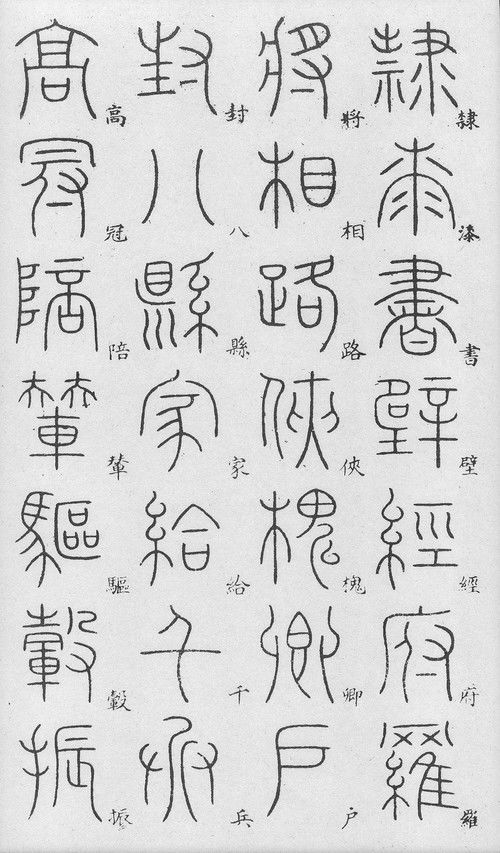 隸漆書壁經府羅
將相路俠槐卿户
封八縣家給千兵
高冠陪輦驅轂振